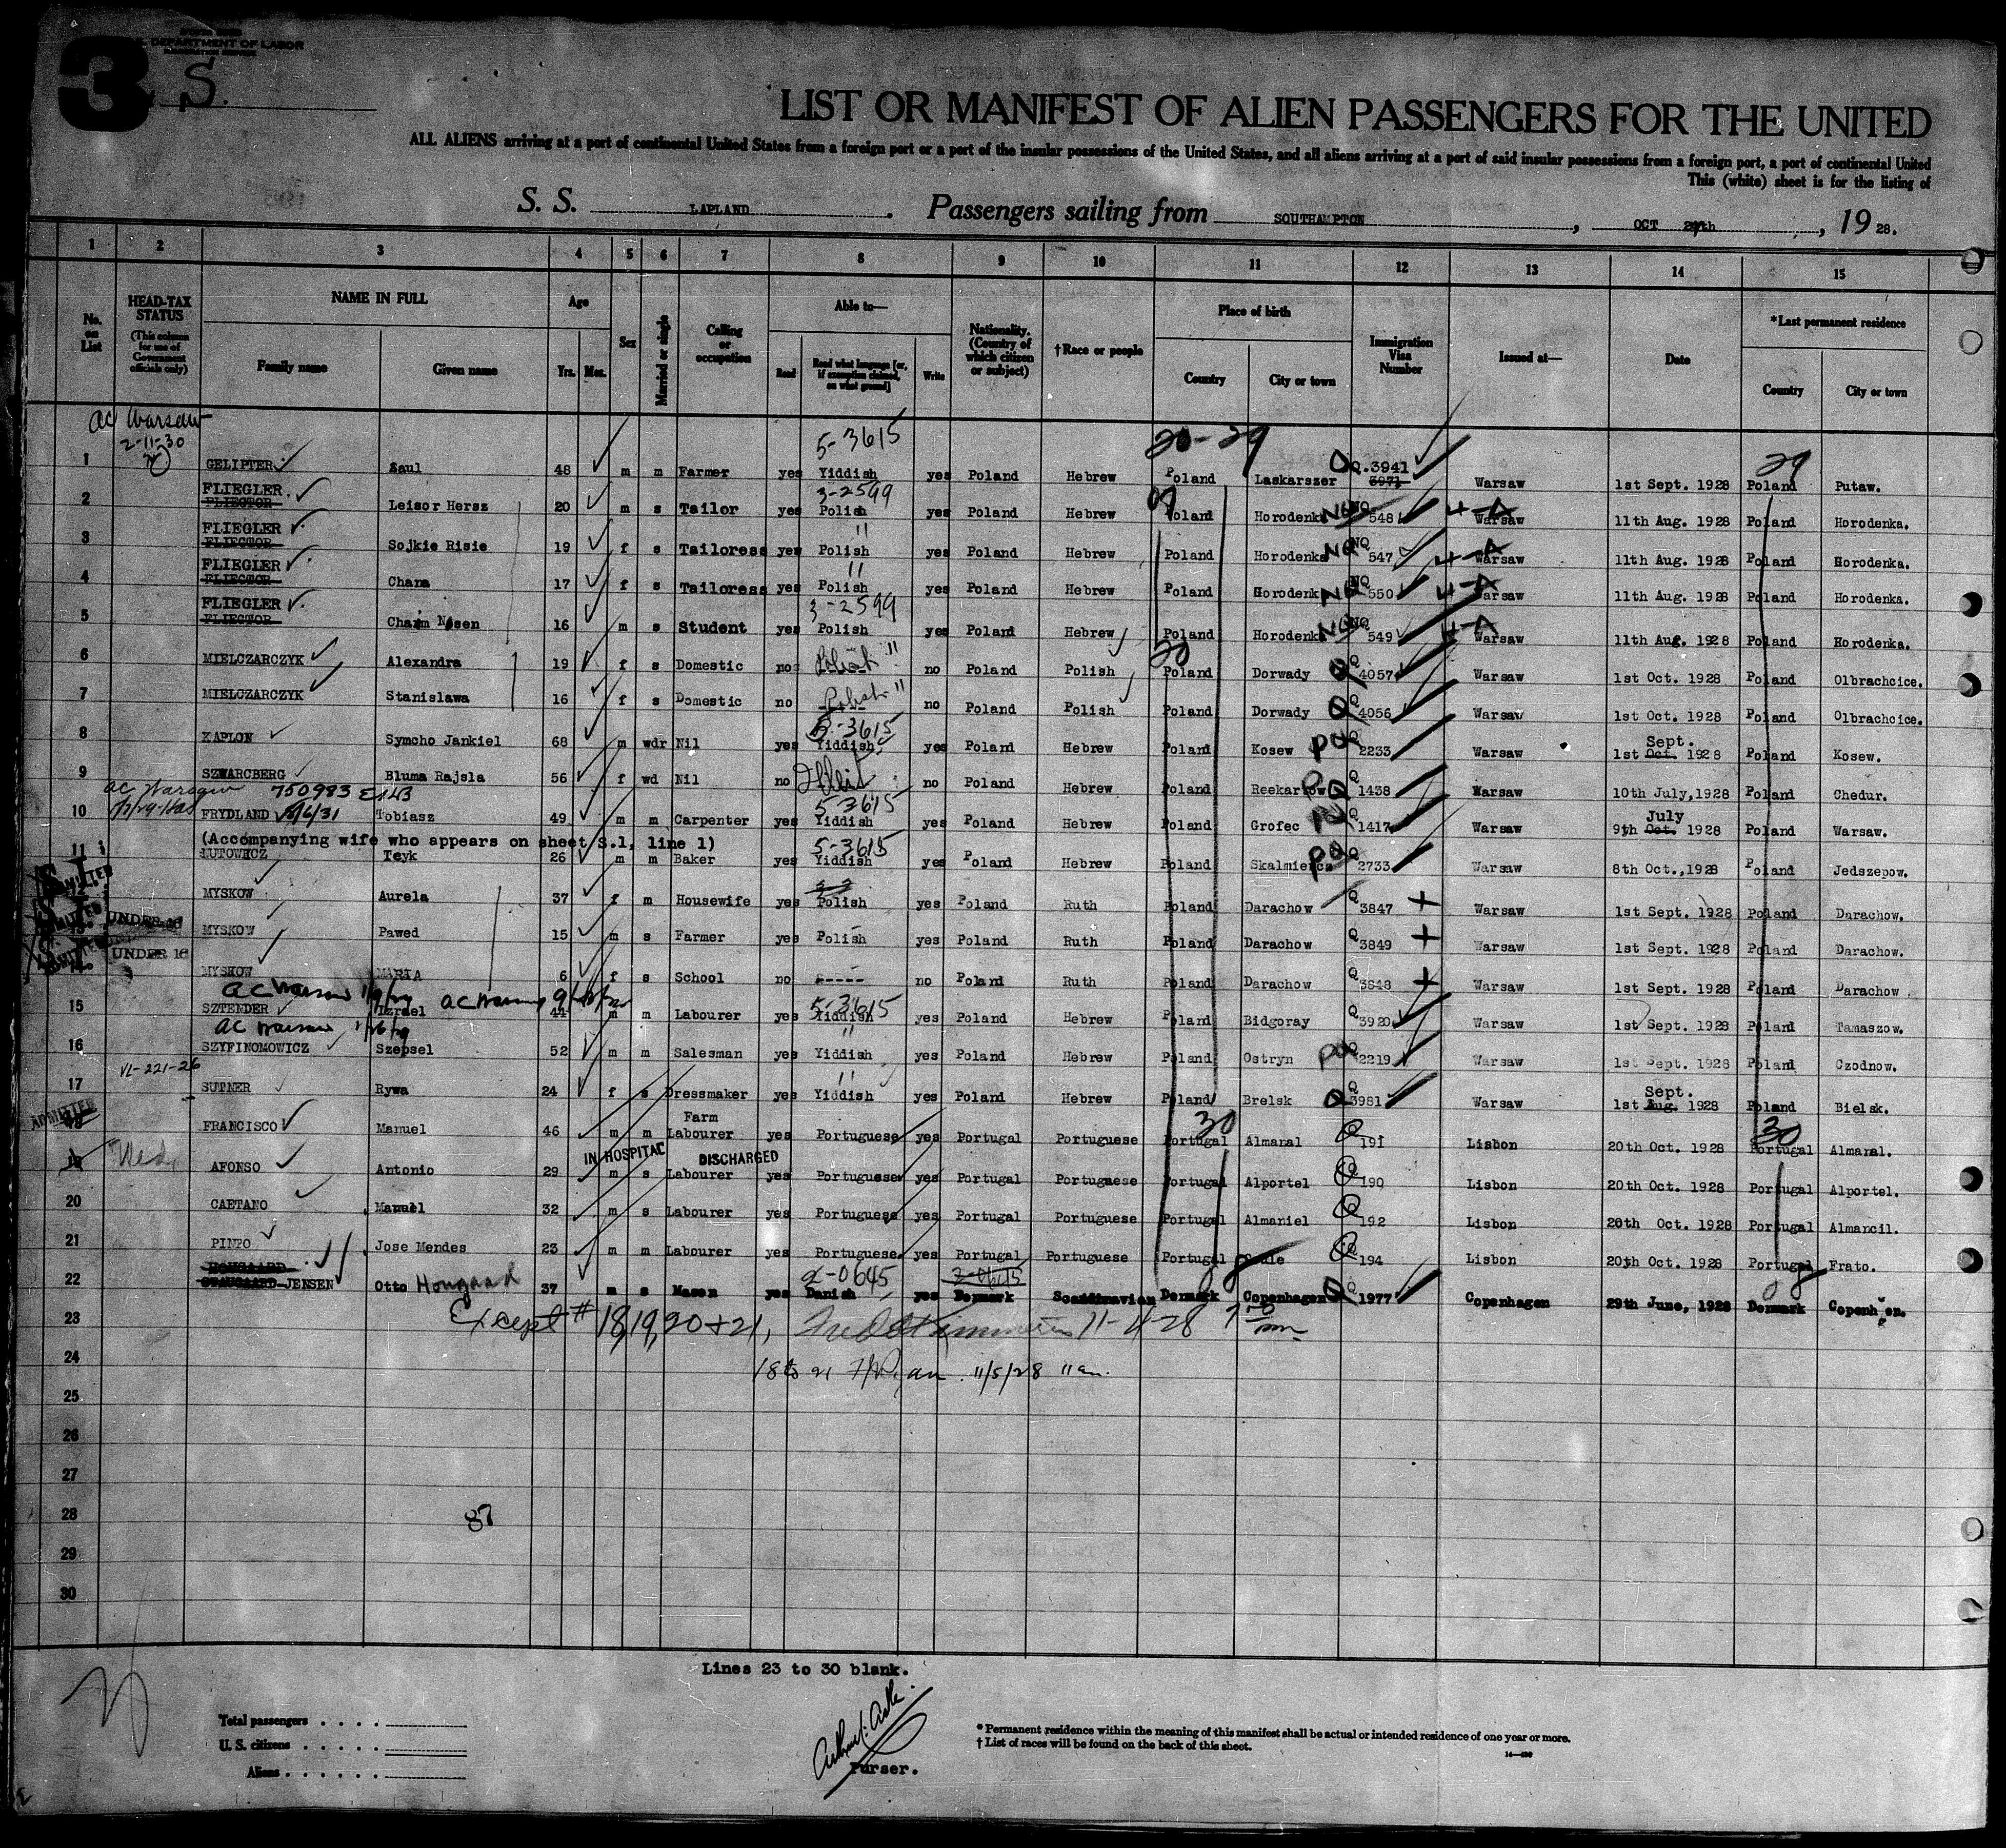 U.S. DEPARTMENT OF LABOR
3 S.
LIST OR MANIFEST OF ALIEN PASSENGERS FOR THE UNITED
ALL ALIENS arriving at a port of continental United States from a foreign port or a port of the insular possessions of the United States, and all aliens arriving at a port of said insular possessions from a foreign port, a port of continental United
This (white) sheet is for the listing of
S. S. LAPLAND. Passengers sailing from SOUTHAMPTON, OCT 27th, 1928.
1 2 3 4 5 6 7 8 9 10 11 12 13 14 15
No. on List
HEAD-TAX STATUS (This column for use of Government officials only)
NAME IN FULL
Family name Given name
Age Yrs. Mos.
Sex
Married or single
Calling or occupation
Able to—
Read Read what language [or, if exemption claimed, on what ground] Write
Nationality. (Country of which citizen or subject)
†Race or people
Place of birth
Country City or town
Immigration Visa Number
Issued at—
Date
*Last permanent residence
Country City or town
ac Warsaw
2-11-30 5-3615 20-29 29
1 GELIPTER Saul 48 m m Farmer yes Yiddish yes Poland Hebrew Poland Laskarszer Q.3941 3971 Warsaw 1st Sept. 1928 Poland Putaw.
3-2599
2 FLIEGLER FLIECTOR Leisor Hersz 20 m s Tailor yes Polish yes Poland Hebrew Poland Horodenka NQ 548 4-A Warsaw 11th Aug. 1928 Poland Horodenka.
3 FLIEGLER FLIECTOR Sojkie Risie 19 f s Tailoress yes Polish yes Poland Hebrew Poland Horodenka NQ 547 4-A Warsaw 11th Aug. 1928 Poland Horodenka.
4 FLIEGLER FLIECTOR Chana 17 f s Tailoress yes Polish yes Poland Hebrew Poland Horodenk NQ 550 4-A Warsaw 11th Aug. 1928 Poland Horodenka.
3-2599
5 FLIEGLER FLIECTOR Chaim Nosen 16 m s Student yes Polish yes Poland Hebrew Poland Horodenk NQ 549 4-A Warsaw 11th Aug. 1928 Poland Horodenka.
6 MIELCZARCZYK Alexandra 19 f s Domestic no no Poland Polish Poland Dorwady Q 4057 Warsaw 1st Oct. 1928 Poland Olbrachcice.
7 MIELCZARCZYK Stanislawa 16 f s Domestic no no Poland Polish Poland Dorwady Q 4056 Warsaw 1st Oct. 1928 Poland Olbrachcice.
5-3615
8 KAPLON Symcho Jankiel 68 m wdr Nil yes Yiddish yes Poland Hebrew Poland Kosew Q 2233 Warsaw 1st Sept. Oct. 1928 Poland Kosew.
9 SZWARCBERG Bluma Rajsla 56 f wd Nil no no Poland Hebrew Poland Reekartow Q 1438 Warsaw 10th July, 1928 Poland Chedur.
ac Warsaw 750983 5-3615
10 FRYDLAND Tobiasz 49 m m Carpenter yes Yiddish yes Poland Hebrew Poland Grofec Q 1417 Warsaw 9th July Oct. 1928 Poland Warsaw.
(Accompanying wife who appears on sheet S.1, line 1) 5-3615
11 LUTOWICZ Teyk 26 m m Baker yes Yiddish yes Poland Hebrew Poland Skalmiercz Q 2733 Warsaw 8th Oct., 1928 Poland Jedszepow.
MYSKOW Aurela 37 f m Housewife yes Polish yes Poland Ruth Poland Darachow Q 3847 Warsaw 1st Sept. 1928 Poland Darachow.
ADMITTED UNDER 16
MYSKOW Pawed 15 m s Farmer yes Polish yes Poland Ruth Poland Darachow Q 3849 Warsaw 1st Sept. 1928 Poland Darachow.
ADMITTED UNDER 16
MYSKOW MARIA 6 f s School no ----- no Poland Ruth Poland Darachow Q 3848 Warsaw 1st Sept. 1928 Poland Darachow.
ac Warsaw ac Warsaw 5-3615
15 SZTENDER Izrael 44 m m Labourer yes Yiddish yes Poland Hebrew Poland Bidgoray Q 3920 Warsaw 1st Sept. 1928 Poland Tamaszow.
ac Warsaw
16 SZYFINOMOWICZ Szepsel 52 m m Salesman yes Yiddish yes Poland Hebrew Poland Ostryn Q 2219 Warsaw 1st Sept. 1928 Poland Czodnow.
17 SUTNER Rywa 24 f s Dressmaker yes Yiddish yes Poland Hebrew Poland Brelsk Q 3981 Warsaw 1st Sept. Aug. 1928 Poland Bielsk.
ADMITTED
18 FRANCISCO Manuel 46 m m Farm Labourer yes Portuguese yes Portugal Portuguese Portugal Almaral Q 191 Lisbon 20th Oct. 1928 Portugal Almaral.
IN HOSPITAL DISCHARGED
19 Med. AFONSO Antonio 29 m s Labourer yes Portuguese yes Portugal Portuguese Portugal Alportel Q 190 Lisbon 20th Oct. 1928 Portugal Alportel.
20 CAETANO Manuel 32 m s Labourer yes Portuguese yes Portugal Portuguese Portugal Almaniel Q 192 Lisbon 20th Oct. 1928 Portugal Almancil.
21 PINTO Jose Mendes 23 m m Labourer yes Portuguese yes Portugal Portuguese Portugal Q 194 Lisbon 20th Oct. 1928 Portugal Frato.
2-0645 2-0645
22 HOUGAARD JENSEN Otto Hougaard 37 m s Mason yes Danish yes Denmark Scandinavian Denmark Copenhagen Q 1977 Copenhagen 29th June, 1928 Denmark Copenhagen.
23 Except # 18, 19, 20 + 21, 11-4-28
24 18 to 21 11/5/28 11 am.
25
26
27
28 87
29
30
Lines 23 to 30 blank.
Total passengers
U. S. citizens
Aliens
Purser.
* Permanent residence within the meaning of this manifest shall be actual or intended residence of one year or more.
† List of races will be found on the back of this sheet.